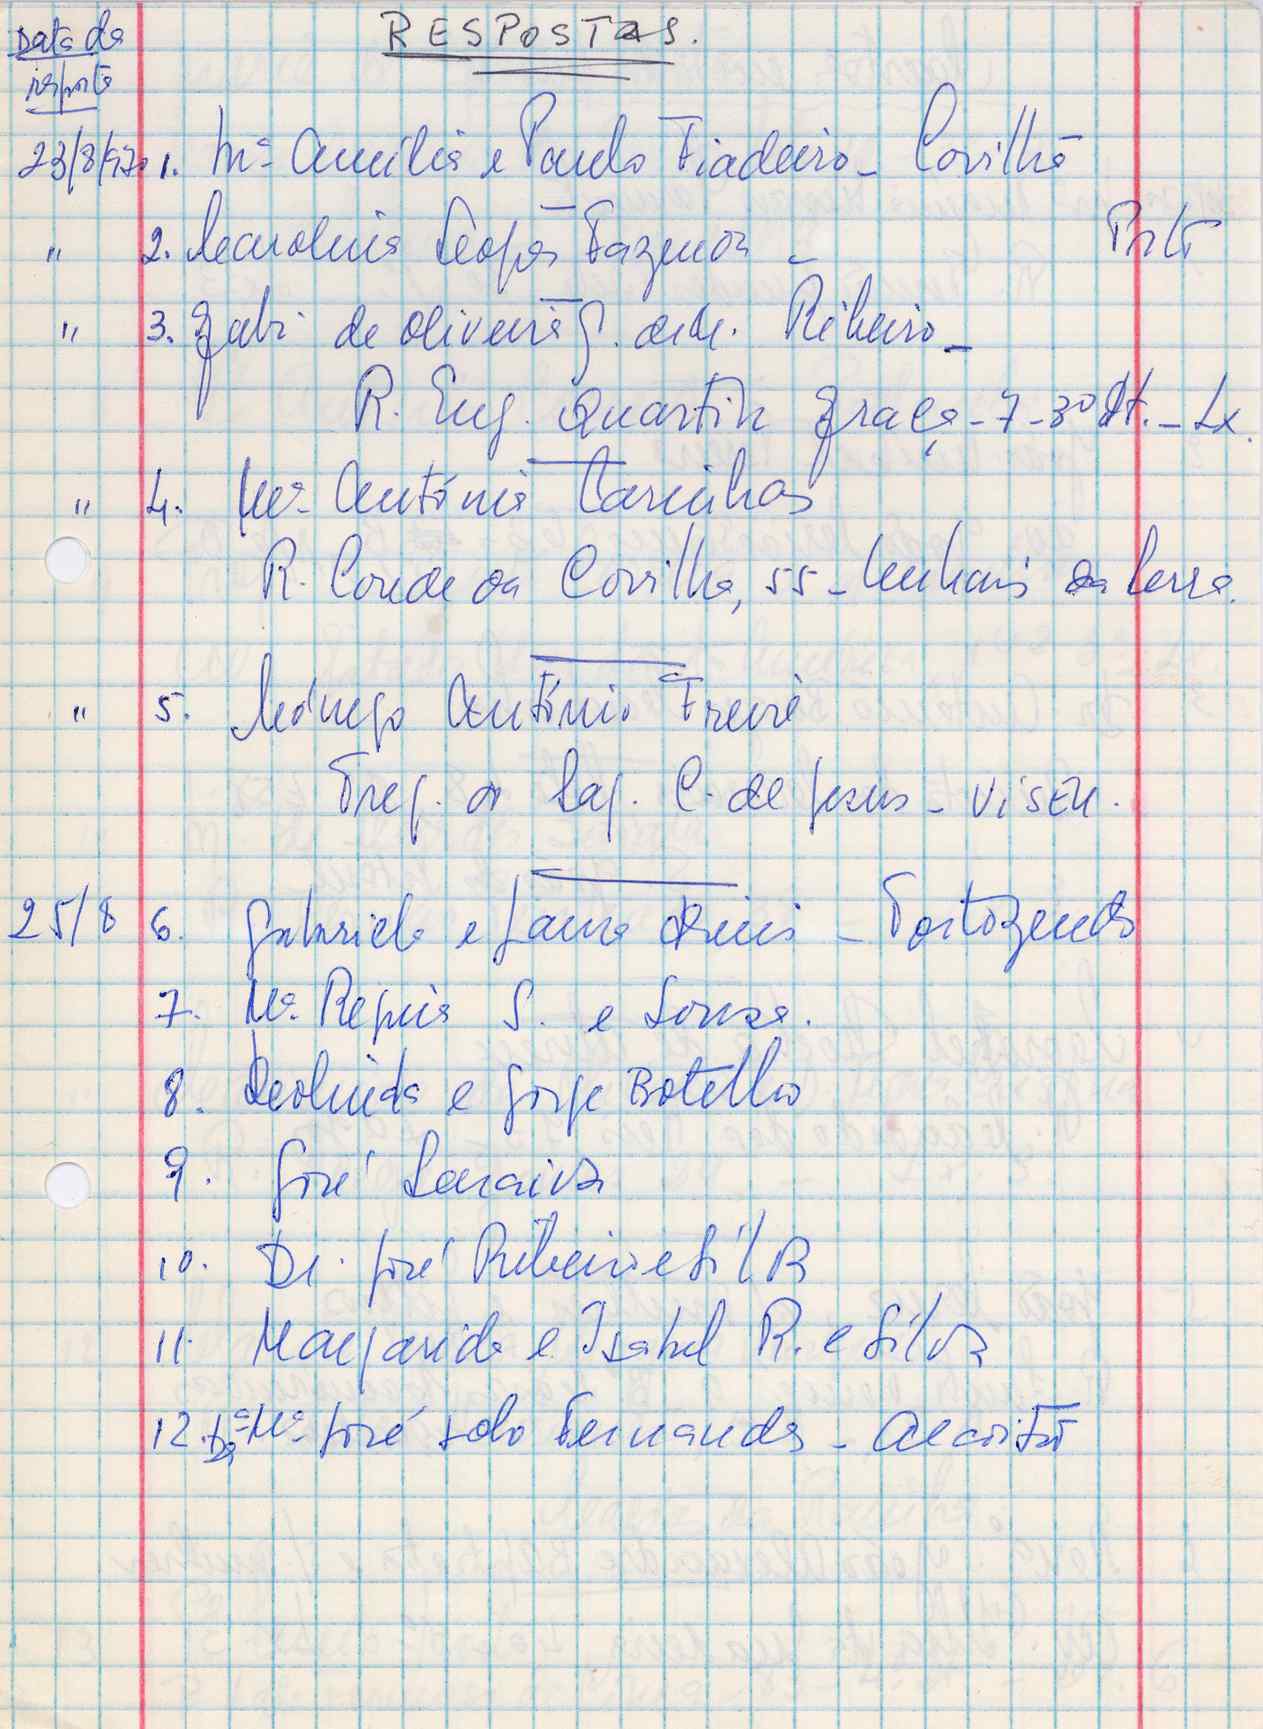 Data da
resposta
RESPOSTAS.
23/8/97 1. Mª Amélia e Paulo Fiadeiro - Covilhã
" 2. Leopos Fazenda - Porto
" 3. Gabi de Oliveira G. Ribeiro -
R. Eng. Quartin Graça - 7 - 3º Dt. - Lx.
" 4. Mª Antónia Carinhas
R. Conde da Covilhã, 55 - Penhas da Serra.
" 5. Cónego António Freire
Freg. do Sag. C. de Jesus - VISEU.
25/8 6. Gabriela e Laura Dinis - Tortozendo
7. Mª Regina S. e Sousa.
8. Deolinda e Jorge Botelho
9. José Saraiva
10. Dr. José Ribeiro e Silva
11. Margarida e Isabel R. e Silva
12. Drª Mª José Lobo Fernandes - Alcoitão